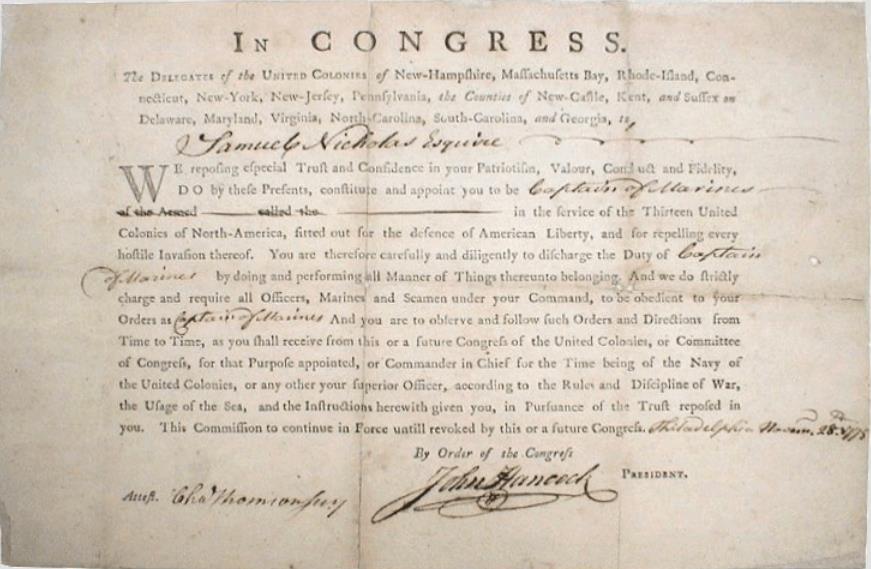 IN CONGRESS.
The DELEGATES of the UNITED COLONIES of New-Hampſhire, Maſſachuſetts Bay, Rhode-Iſland, Con-
necticut, New-York, New-Jerſey, Pennſylvania, the Counties of New-Caſtle, Kent, and Suſſex on
Delaware, Maryland, Virginia, North-Carolina, South-Carolina, and Georgia, to
Samuel Nicholas Esquire
WE repoſing eſpecial Truſt and Confidence in your Patriotiſm, Valour, Conduct and Fidelity,
DO by theſe Preſents, conſtitute and appoint you to be Captain of Marines
of the Armed called the in the ſervice of the Thirteen United
Colonies of North-America, fitted out for the defence of American Liberty, and for repelling every
hoſtile Invaſion thereof. You are therefore carefully and diligently to diſcharge the Duty of Captain
of Marines by doing and performing all Manner of Things thereunto belonging. And we do ſtrictly
charge and require all Officers, Marines and Seamen under your Command, to be obedient to your
Orders as Captain of Marines And you are to obſerve and follow ſuch Orders and Directions from
Time to Time, as you ſhall receive from this or a future Congreſs of the United Colonies, or Committee
of Congreſs, for that Purpoſe appointed, or Commander in Chief for the Time being of the Navy of
the United Colonies, or any other your ſuperior Officer, according to the Rules and Diſcipline of War,
the Uſage of the Sea, and the Inſtructions herewith given you, in Purſuance of the Truſt repoſed in
you. This Commiſſion to continue in Force untill revoked by this or a future Congreſs. Philadelphia Novem. 28th 1775
By Order of the Congreſs
John Hancock PRESIDENT.
Atteſt. Chas Thomson secy